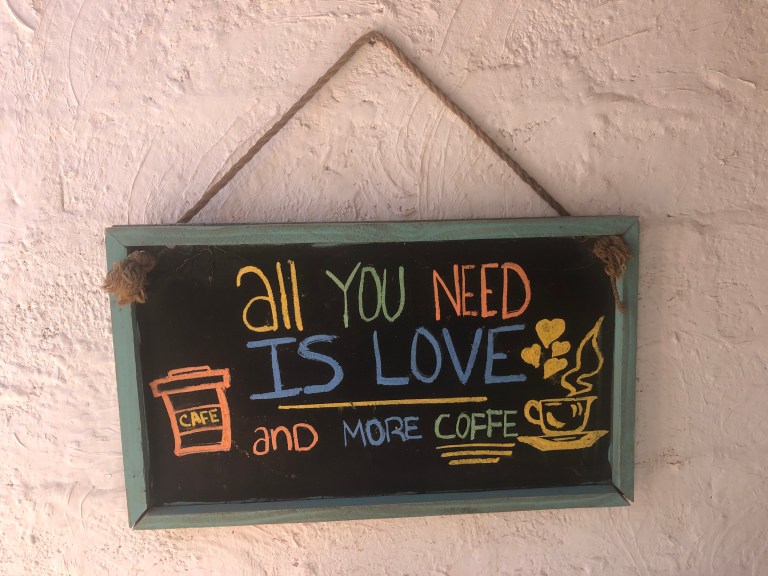 all YOU NEED
IS LOVE
CAFE
and MORE COFFE